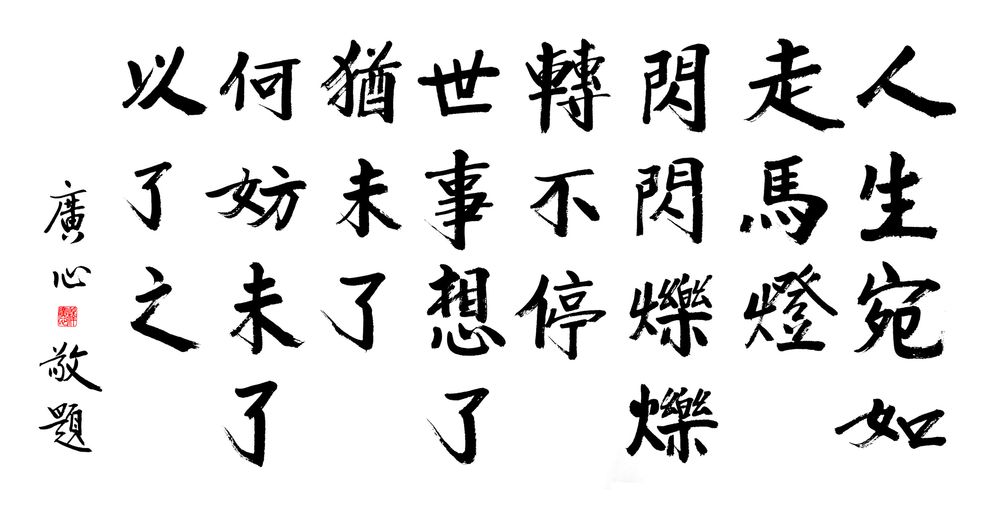 人生宛如
走馬燈
閃閃爍爍
轉不停
世事想了
猶未了
何妨未了
以了之
廣心敬題